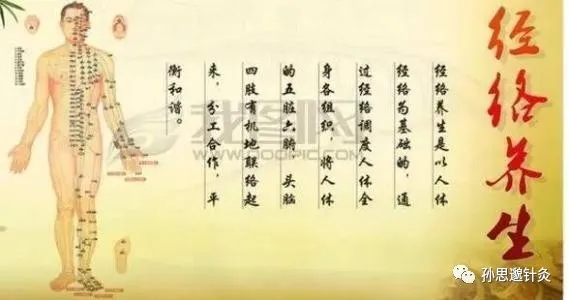 经络养生
经络养生是以人体
经络为基础的,通
过经络调度人体全
身各组织,将人体
的五脏六腑、头脑
四肢有机地联络起
来,分工合作,平
衡和谐。
我图网
WWW.OOOPIC.COM
孙思邈针灸